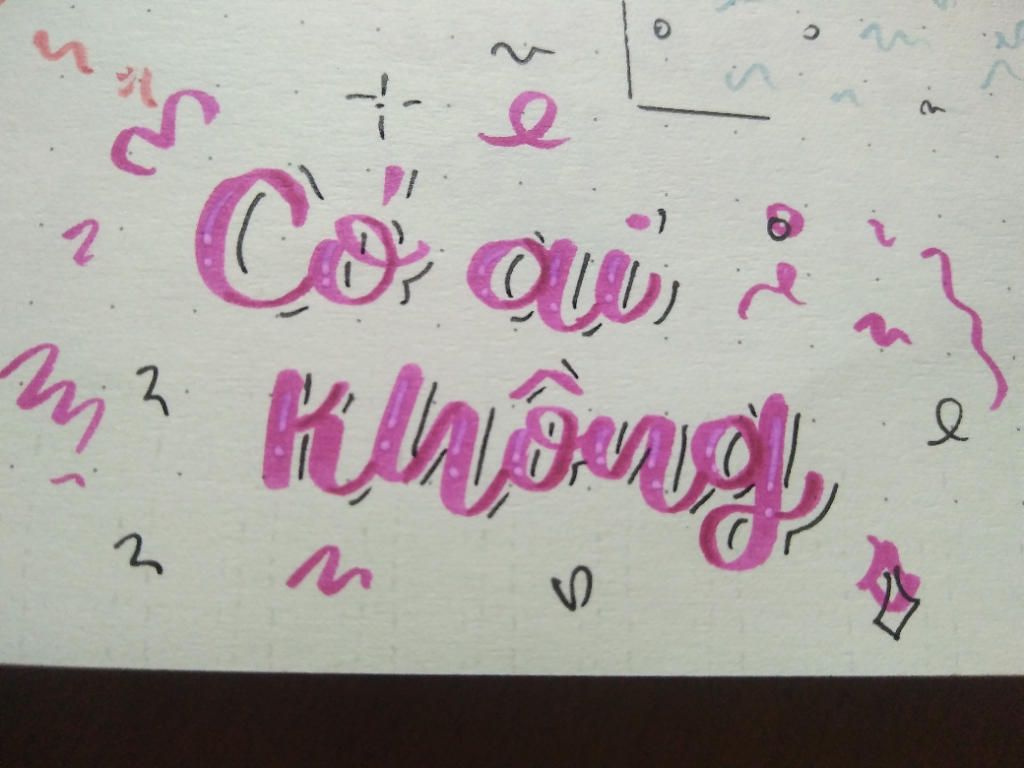 Có ai
không